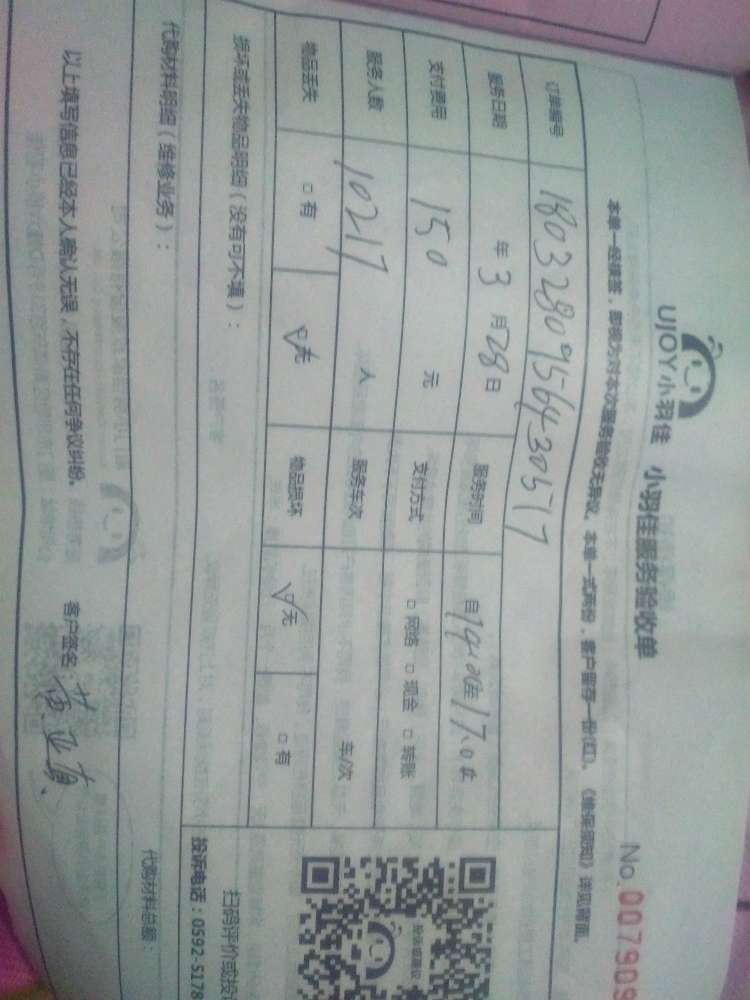 UJOY小羽佳 小羽佳服务验收单
No.007909
本单一经签签，即视为对本次服务验收无异议。本单一式两份，客户留存一份(红)。《维保须知》详见背面。
订单编号 180328095643057
服务日期 年3月28日 服务时间 自14:00至17:00
支付费用 150 元 支付方式 □网络 □现金 □转账
服务人数 10217 人 服务车次 车/次
物品丢失 □有 □无 物品损坏 □无 □有
损坏或丢失物品明细（没有可不填）：
扫码评价或投
投诉电话：0592 5178
代购材料明细（维修业务）：
代购材料总额：
以上填写信息已经本人确认无误，不存在任何争议纠纷。 客户签名